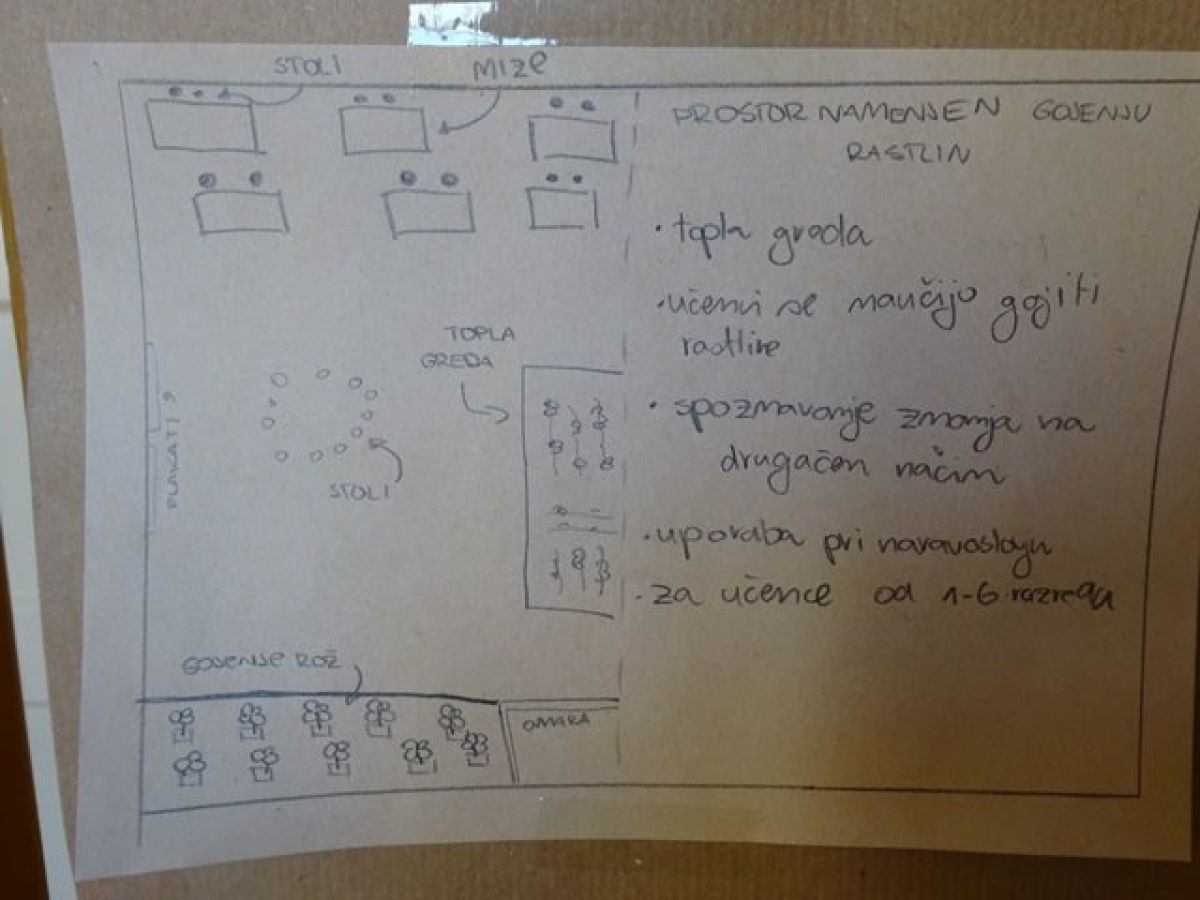 STOLI
MIZE
TOPLA
GREDA
PLAKATI
STOLI
GOJENJE ROŽ
OMARA
PROSTOR NAMENJEN GOJENJU
RASTLIN
• topla greda
• učenci se naučijo gojiti
rastline
• spoznavanje znanja na
drugačen način
• uporaba pri naravoslovju
• za učence od 1-6 razreda